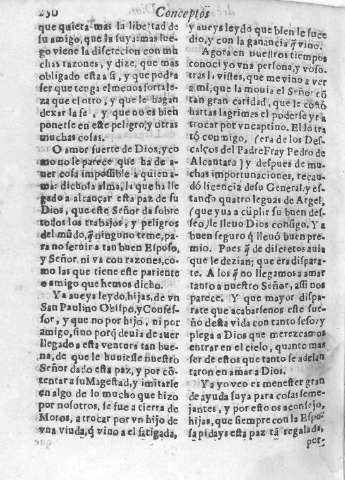 250 Conceptos
que quiera mas la libertad de
su amigo, que la suya: mas lue-
go viene la discrecion con mu
chas razones, y dize, que mas
obligado està a si, y que podrà
ser que tenga el menos fortale-
za que el otro, y que le hagan
dexar la fe, y que no es bien
ponerse en este peligro, y otras
muchas cosas.
O amor fuerte de Dios, y co
mo no le parece que ha de a-
uer cosa impossible a quien a-
ma: dichosa alma, la que ha lle-
gado a alcançar esta paz de su
Dios, que este Señor da sobre
todos los trabajos, y peligros
del mũdo, q̃ ninguno teme, pa-
ra no seruir a tan buen Esposo,
y Señor, ni va con razones, co-
mo las que tiene este pariente
o amigo que hemos dicho.
Ya aueys leydo, hijas, de vn
San Paulino Obispo, y Confes-
sor, y que no por hijo, ni por
amigo, sino porq̃ deuia de auer
llegado a esta ventura tan bue-
na, de que le huuiesse nuestro
Señor dado esta paz, y por cõ-
tentar a su Magestad, y imitarle
en algo de lo mucho que hizo
por nosotros, se fue a tierra de
Moros, a trocar por vn hijo de
vna viuda, q̃ vino a el fatigada,
y aueys leydo que bien le suce
dio, y con la ganancia q̃ vino.
Agora en nuestros tiempos
conoci yo vna persona, y voso-
tras la vistes, que me vino a ver
a mi, que la mouia el Señor cõ
tan gran caridad, que le costò
hartas lagrimas el poderse yr a
trocar por vn captiuo. El lo tra
tò conmigo, (era de los Des-
calços del Padre Fray Pedro de
Alcantara) y despues de mu-
chas importunaciones, recau-
dò licencia de su General, y es-
tando quatro leguas de Argel,
(que yua a cũplir su buen des-
seo, le lleuò Dios consigo. Y a
buen seguro q̃ lleuò buen pre-
mio. Pues q̃ de discretos auia
que le dezian; que era dispara-
te. A los q̃ no llegamos a amar
tanto a nuestro Señor, assi nos
parece. Y que mayor dispa-
rate que acabarsenos este sue-
ño desta vida con tanto seso: y
plega a Dios que merezcamos
entrar en el cielo, quanto mas
ser de estos que tanto se adelan
taron en amar a Dios.
Ya yo veo es menester gran
de ayuda suya para cosas seme-
jantes, y por esto os aconsejo,
hijas, que siempre con la Espo-
sa pidays esta paz tã regalada,
por-